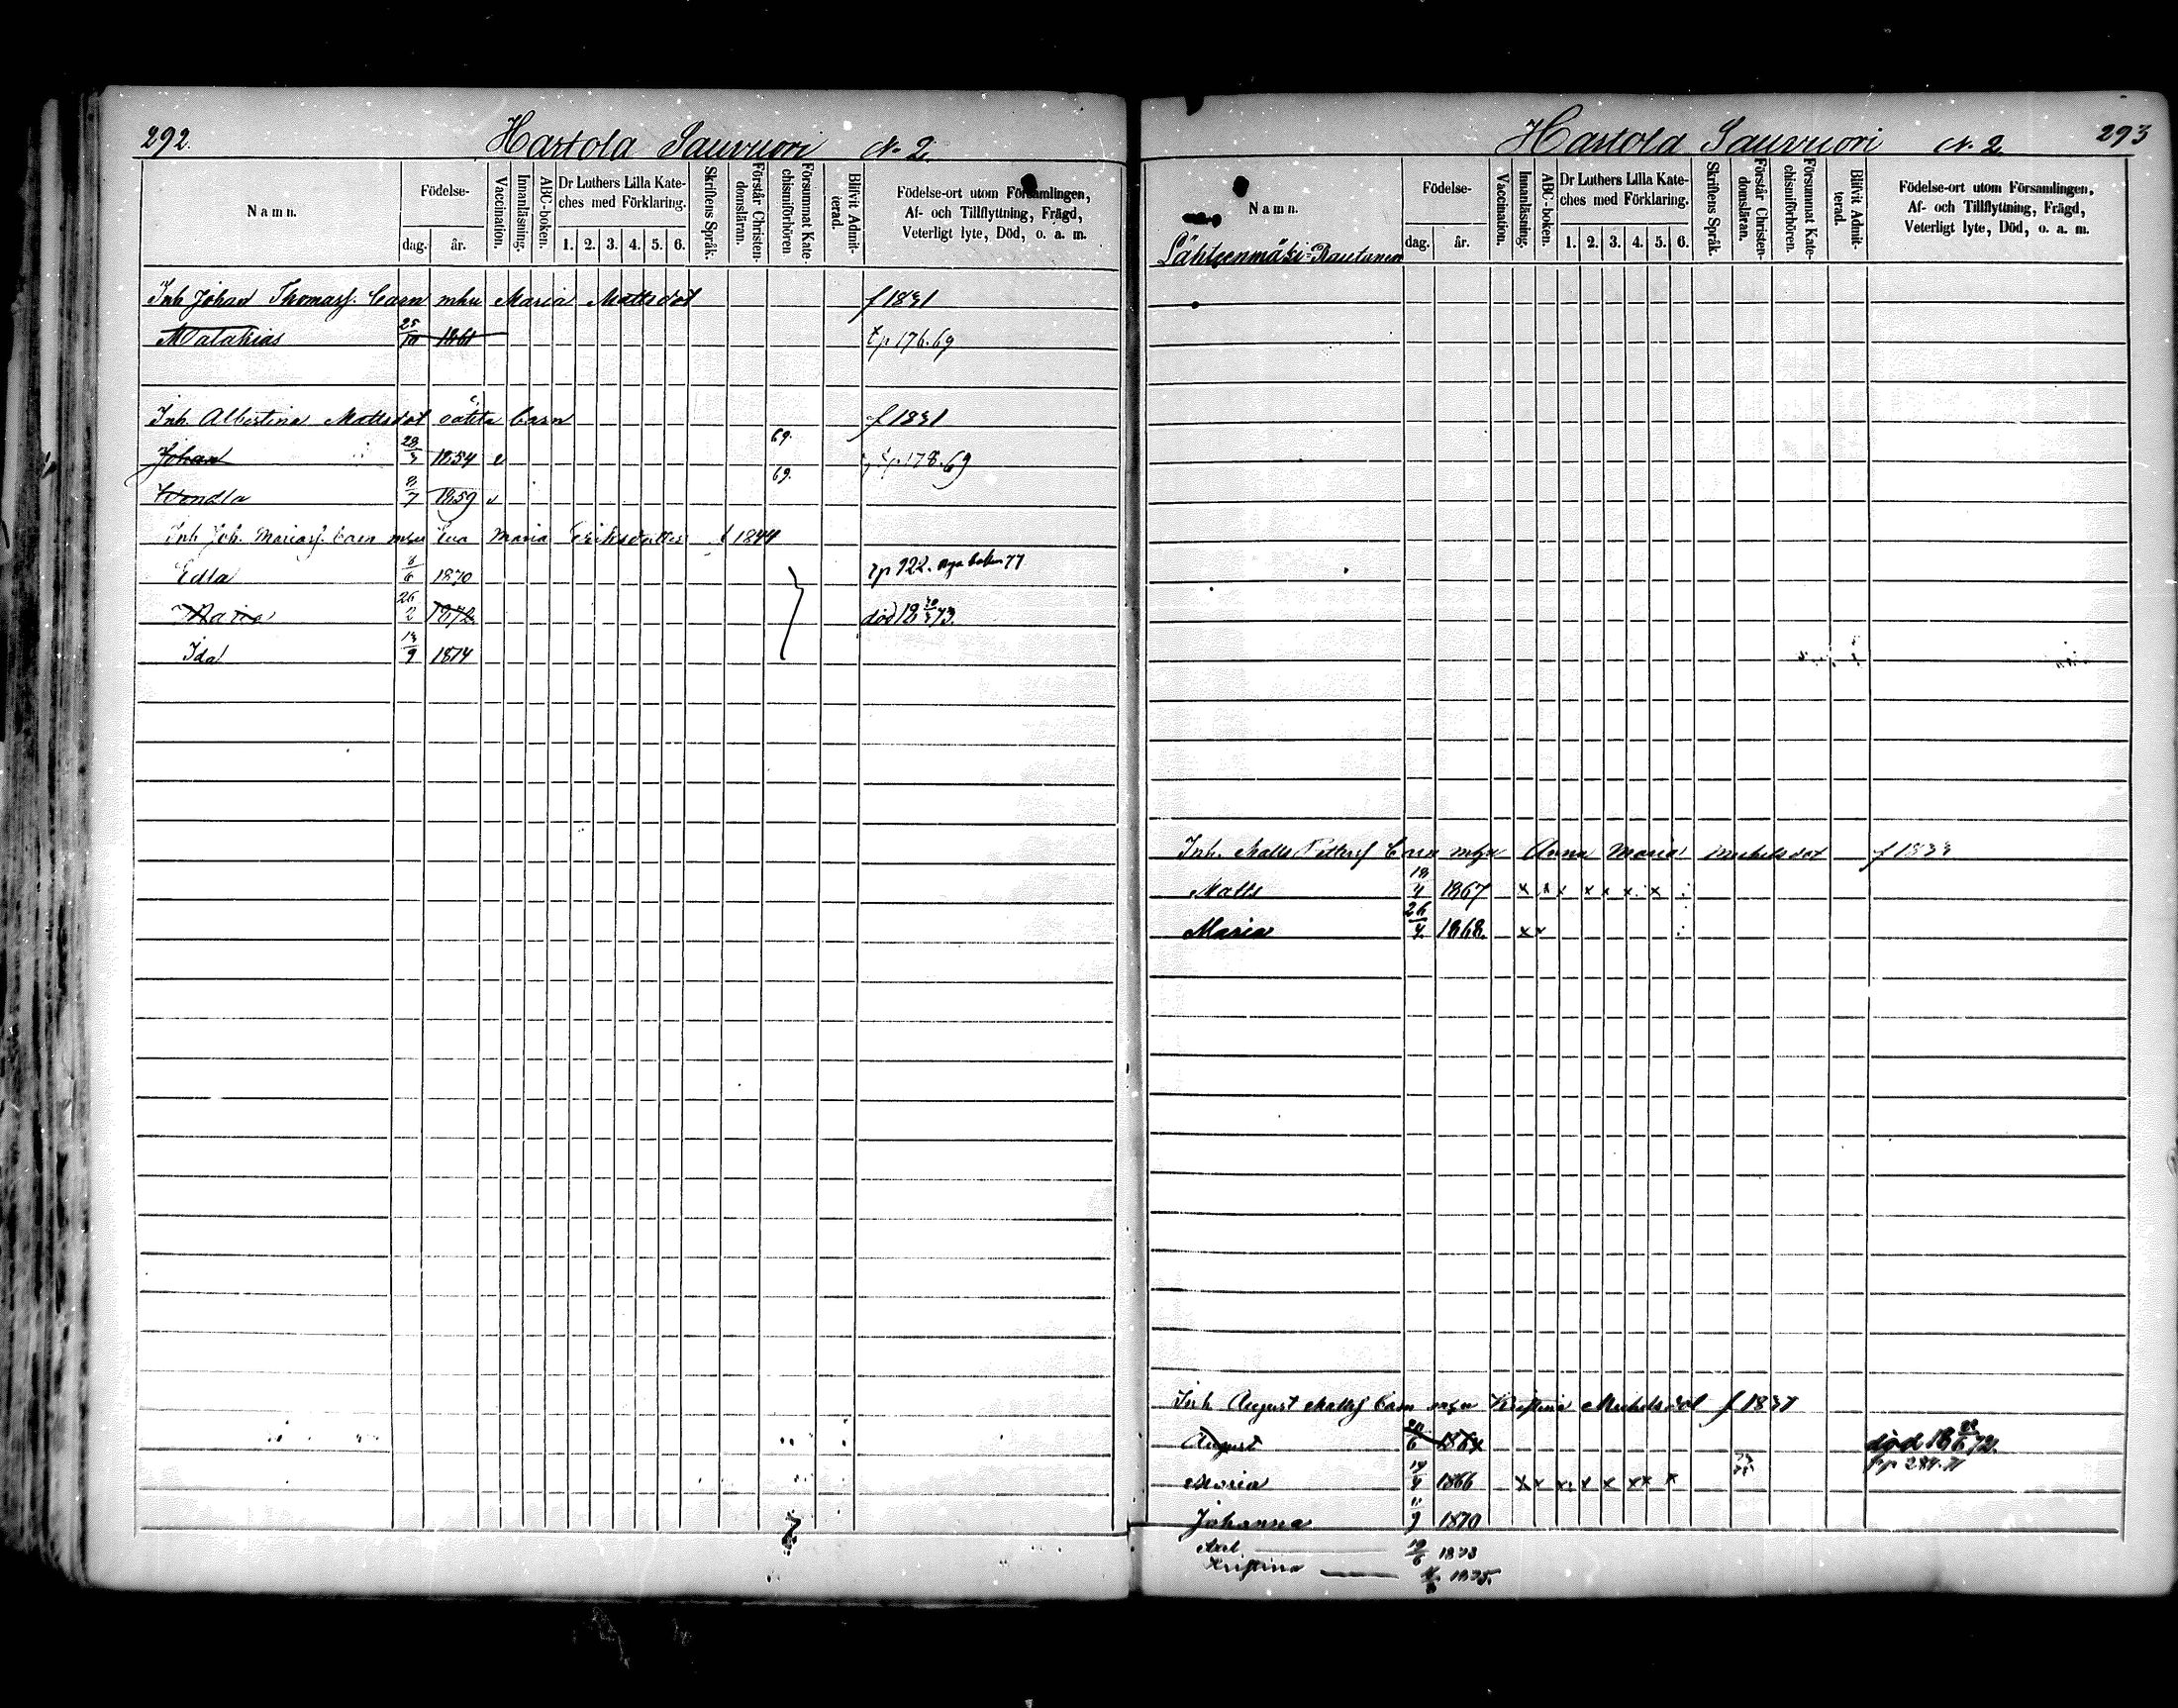 292.
Hartola Sauvuori № 2.
Namn.
Födelse-
dag. år.
Vaccination.
Innanläsning.
ABC-boken.
Dr Luthers Lilla Kate-
ches med Förklaring.
1. 2. 3. 4. 5. 6.
Skriftens Språk.
Förstår Christen-
domsläran.
Försummat Kate-
chismiförhören
Blifvit Admit-
terad.
Födelse-ort utom Församlingen,
Af- och Tillflyttning, Frägd,
Veterligt lyte, Död, o. a. m.
Inh Johan Thomasf. barn mhu Maria Mattsdot f 1831
Malakias 25/10 1861 tp 176.69
Inh. Albertina Mattsdot oäkta barn f 1831
Johan 28/3 1854 v 69. tp. 178.69
Wendla 8/7 1859 v 69.
Inh Joh. Mariasf. barn mhu Eva Maria Eriksdotter f 1844
Edla 8/6 1870 rp 922. nya boken 77
Maria 26/2 1872 död 18 30/3 73.
Ida 13/9 1874
293
Hartola Sauvuori № 2.
Namn.
Lähteenmäki-Rautanen
Födelse-
dag. år.
Vaccination.
Innanläsning.
ABC-boken.
Dr Luthers Lilla Kate-
ches med Förklaring.
1. 2. 3. 4. 5. 6.
Skriftens Språk.
Förstår Christen-
domsläran.
Försummat Kate-
chismiförhören.
Blifvit Admit-
terad.
Födelse-ort utom Församlingen,
Af- och Tillflyttning, Frägd,
Veterligt lyte, Död, o. a. m.
Inh. Matts Pettersf barn mhu Anna Maria Michelsdot f 1833
Matts 18/4 1867 x x x x x x x
Maria 26/4 1868. x x
Inh August Mattsf barn mhu Kristina Michelsdot f 1837
August 20/6 1864 död 18 /6 72.
Maria 14/4 1866 x x x x x x x x
Johanna 11/9 1870
Axel 19/6 1873
Kristina 1875.